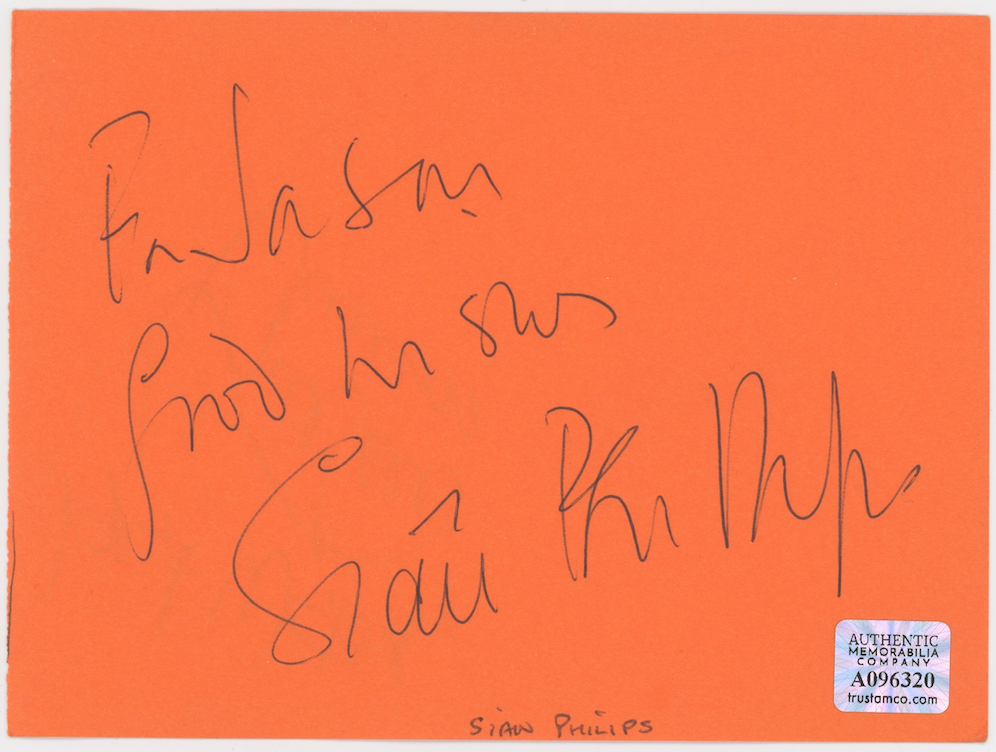 For Jason
Good Wishes
Siân Phillips
SIAN PHILIPS
AUTHENTIC
MEMORABILIA
COMPANY
A096320
trustamco.com